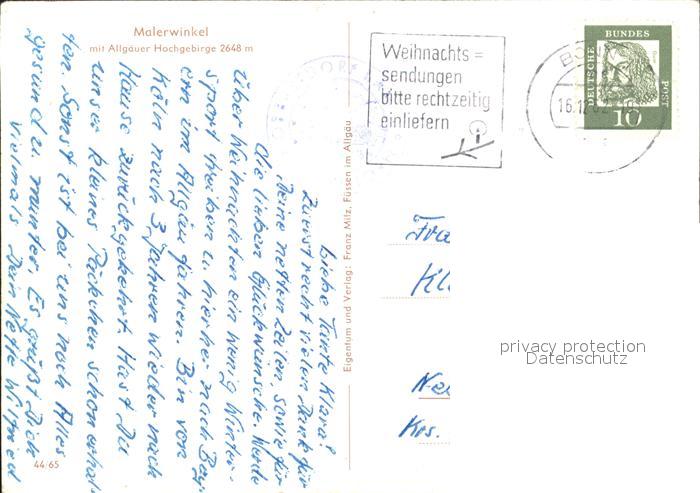 Malerwinkel
mit Allgäuer Hochgebirge 2648 m
Weihnachts=
sendungen
bitte rechtzeitig
einliefern
16.12
DEUTSCHE BUNDES POST
10
Eigentum und Verlag: Franz Milz, Füssen im Allgäu
Liebe Tante Klara!
Zuerst recht vielen Dank für
Deine netten Zeilen, sowie für
die lieben Glückwünsche. Werde
über Weihnachten ein wenig Winter-
sport treiben u. hierher nach Bay-
ern im Allgäu fahren. Bin von
Köln nach 3 Jahren wieder nach
Hause zurückgekehrt. Hast Du
unser kleines Päckchen schon erhal-
ten. Sonst ist bei uns noch Alles
gesund u. munter. Es grüßt Dich
vielmals Dein Neffe Wilfried
Fra
Kl
Ne
Krs.
privacy protection
Datenschutz
44/65